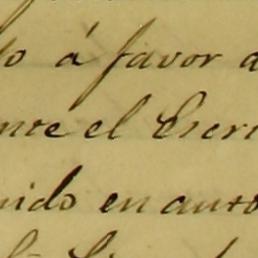 to á favor d
nte el Escri
nido en auto